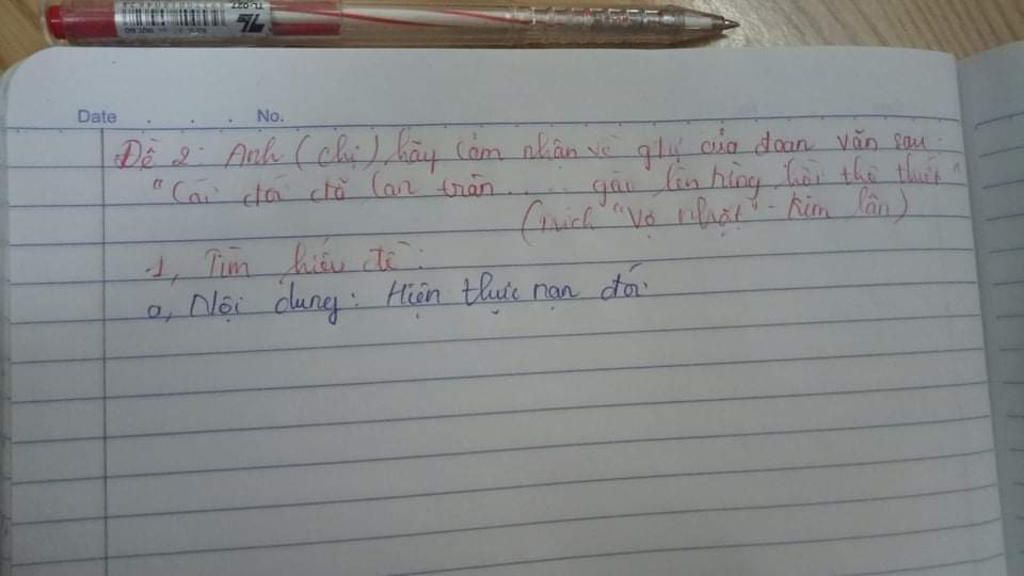 TL-027
TL
Date . . . . No.
Đề 2: Anh (chị) hãy cảm nhận về gtrị của đoạn văn sau:
"Cái đói đã tràn .... gào lên từng hồi thê thiết"
(trích "Vợ nhặt" - Kim Lân)
1, Tìm hiểu đề:
a, Nội dung: Hiện thực nạn đói